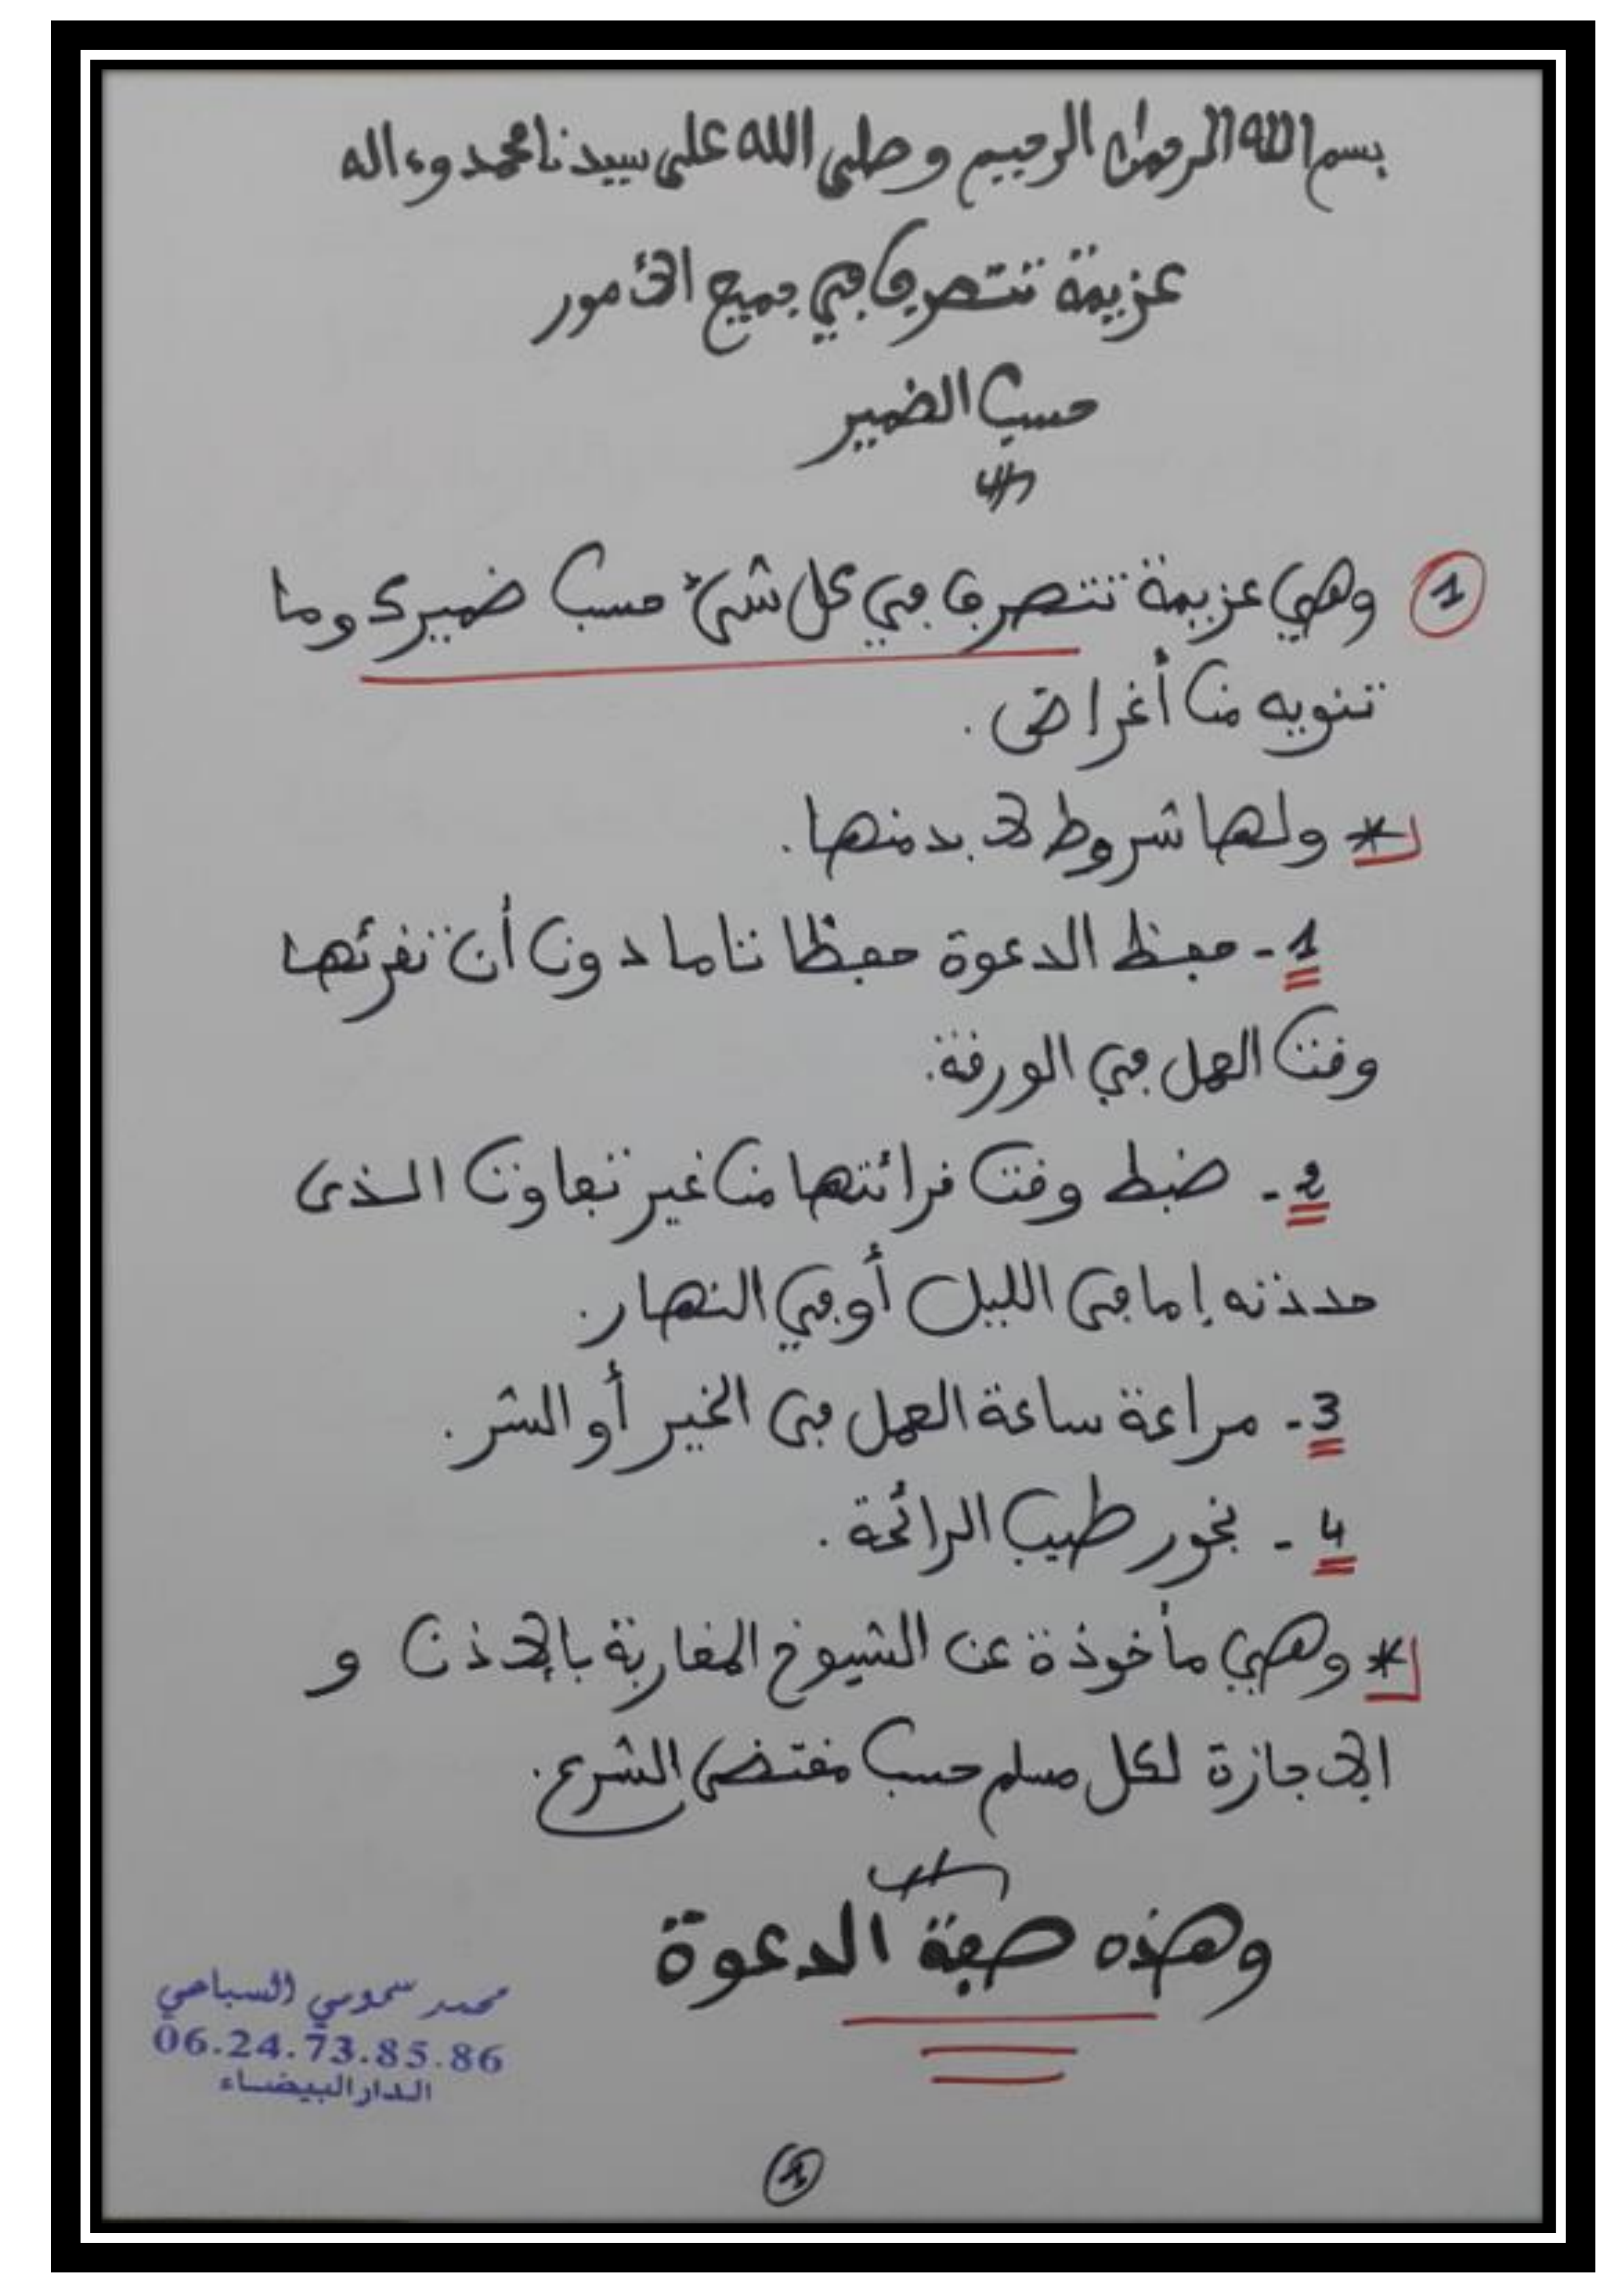 بسم الله الرحمان الرحيم وصلى الله على سيدنا محمد وءاله
عزيمة تتصرف في جميع الأمور
حسب الضمير
1 وهي عزيمة تتصرف في كل شئ حسب ضميرك وما
تنويه من أغراض.
* ولها شروط لا بد منها.
1- حفظ الدعوة حفظا تاما دون أن تقرئها
وقت العمل في الورقة.
2- ضبط وقت قرائتها من غير تفاوت الذى
حددته إما فى الليل أو في النهار.
3- مراعة ساعة العمل فى الخير أو الشر.
4- بخور طيب الرائحة.
* وهي مأخوذة عن الشيوخ المغاربة بالإذن و
الإجازة لكل مسلم حسب مقتضى الشرع.
وهذه صفة الدعوة
محمد سموسي السباعي
06.24.73.85.86
الدار البيضاء
1